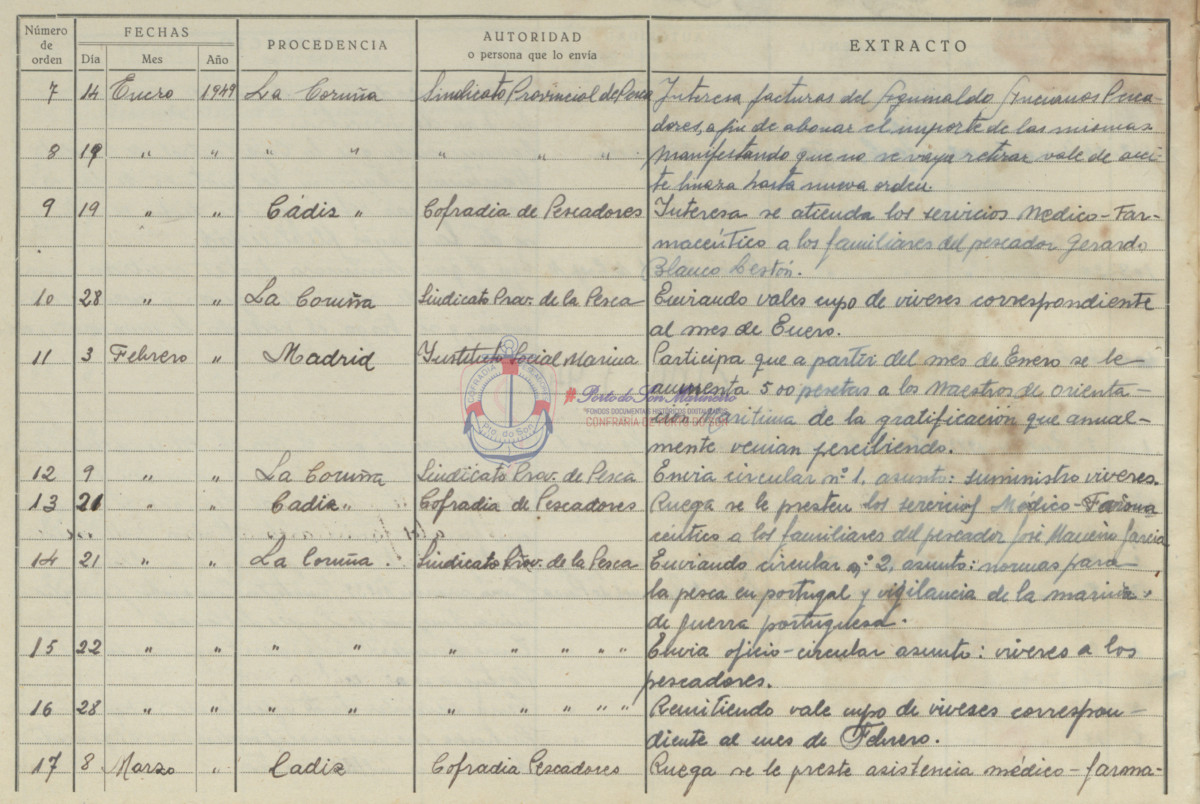 Número de orden FECHAS PROCEDENCIA AUTORIDAD o persona que lo envía EXTRACTO
Día Mes Año
7 14 Enero 1949 La Coruña Sindicato Provincial de Pesca Interesa facturas del Aguinaldo Ancianos Pesca-
dores, a fin de abonar el importe de las mismas.
8 19 " " " " " " " Manifestando que no se vaya retirar vale de acei-
te linaza hasta nueva orden.
9 19 " " Cádiz " Cofradia de Pescadores Interesa se atienda los servicios Medico-Far-
maceútico a los familiares del pescador Gerardo
Blanco Cestón.
10 28 " " La Coruña Sindicato Prov. de la Pesca Enviando vales cupo de viveres correspondiente
al mes de Enero.
11 3 Febrero " Madrid Instituto Social Marina Participa que a partir del mes de Enero se le
aumenta 500 pesetas a los Maestros de Orienta-
ción Maritima de la gratificación que anual-
mente venian percibiendo.
COFRADIA
Pto. do Son
#Porto do Son Mariñeiro
"FONDOS DOCUMENTAIS HISTÓRICOS DIXITALIZADOS"
CONFRARÍA DE PORTO DO SON
12 9 " " La Coruña Sindicato Prov. de Pesca Envia circular nº 1, asunto: suministro viveres.
13 21 " " Cadiz " Cofradia de Pescadores Ruega se le presten los servicios Médico-Farma
ceútico a los familiares del pescador José Maneiro Garcia
14 21 " " La Coruña . Sindicato Prov. de la Pesca Enviando circular nº 2, asunto: normas para
la pesca en portugal y vigilancia de la marina
de guerra portuguesa.
15 22 " " " " " " " " Envia oficio-circular asunto: viveres a los
pescadores.
16 28 " " " " " " " " Remitiendo vale cupo de viveres correspon-
diente al mes de Febrero.
17 8 Marzo " Cadiz Cofradia Pescadores Ruega se le preste asistencia médico-farma-